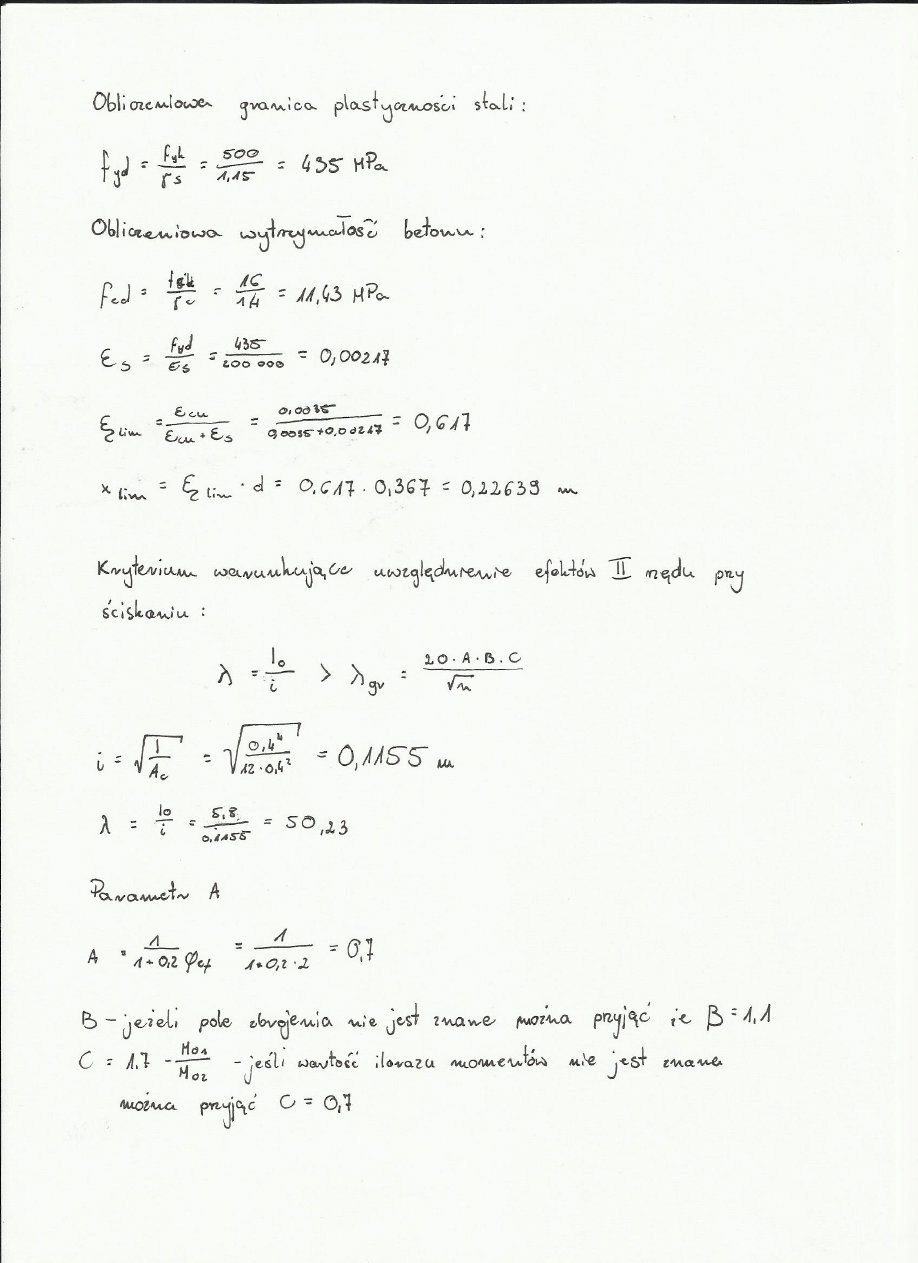 Obliczeniowa granica plastyczności stali:
fyd = fyk/γs = 500/1,15 = 435 MPa
Obliczeniowa wytrzymałość betonu:
fcd = fck/γc = 16/1,4 = 11,43 MPa
εs = fyd/Es = 435/200 000 = 0,00217
ξlim = εcu/(εcu + εs) = 0,0035/(0,0035+0,00217) = 0,617
xlim = ξlim · d = 0,617 · 0,367 = 0,22639 m
Kryterium warunkujące uwzględnienie efektów II rzędu przy
ściskaniu:
λ = l0/i > λgr = 20·A·B·C/√n
i = √(I/Ac) = √(0,4⁴/(12·0,4²)) = 0,1155 m
λ = l0/i = 5,8/0,1155 = 50,23
Parametr A
A = 1/(1+0,2 φef) = 1/(1+0,2·2) = 0,7
B - jeżeli pole zbrojenia nie jest znane można przyjąć że B = 1,1
C = 1,7 - M01/M02 - jeśli wartość ilorazu momentów nie jest znana
można przyjąć C = 0,7